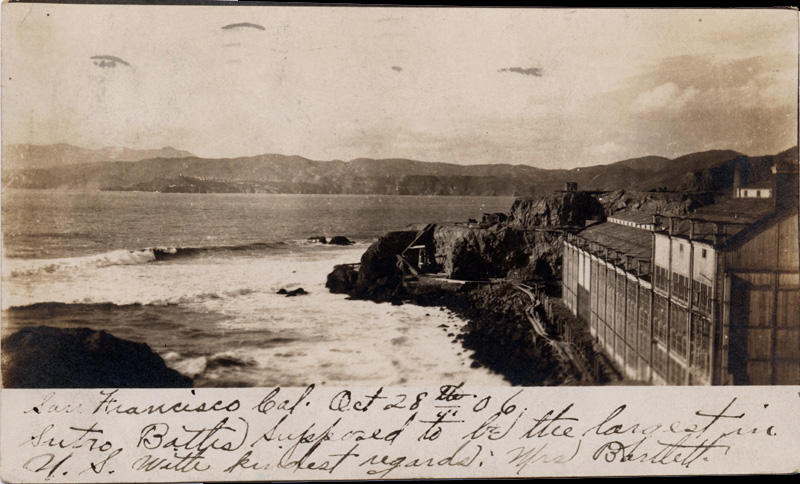 San Francisco Cal. Oct 28th 06.
Sutro Baths supposed to be the largest in
U. S. With kindest regards. Mrs Bartlett.